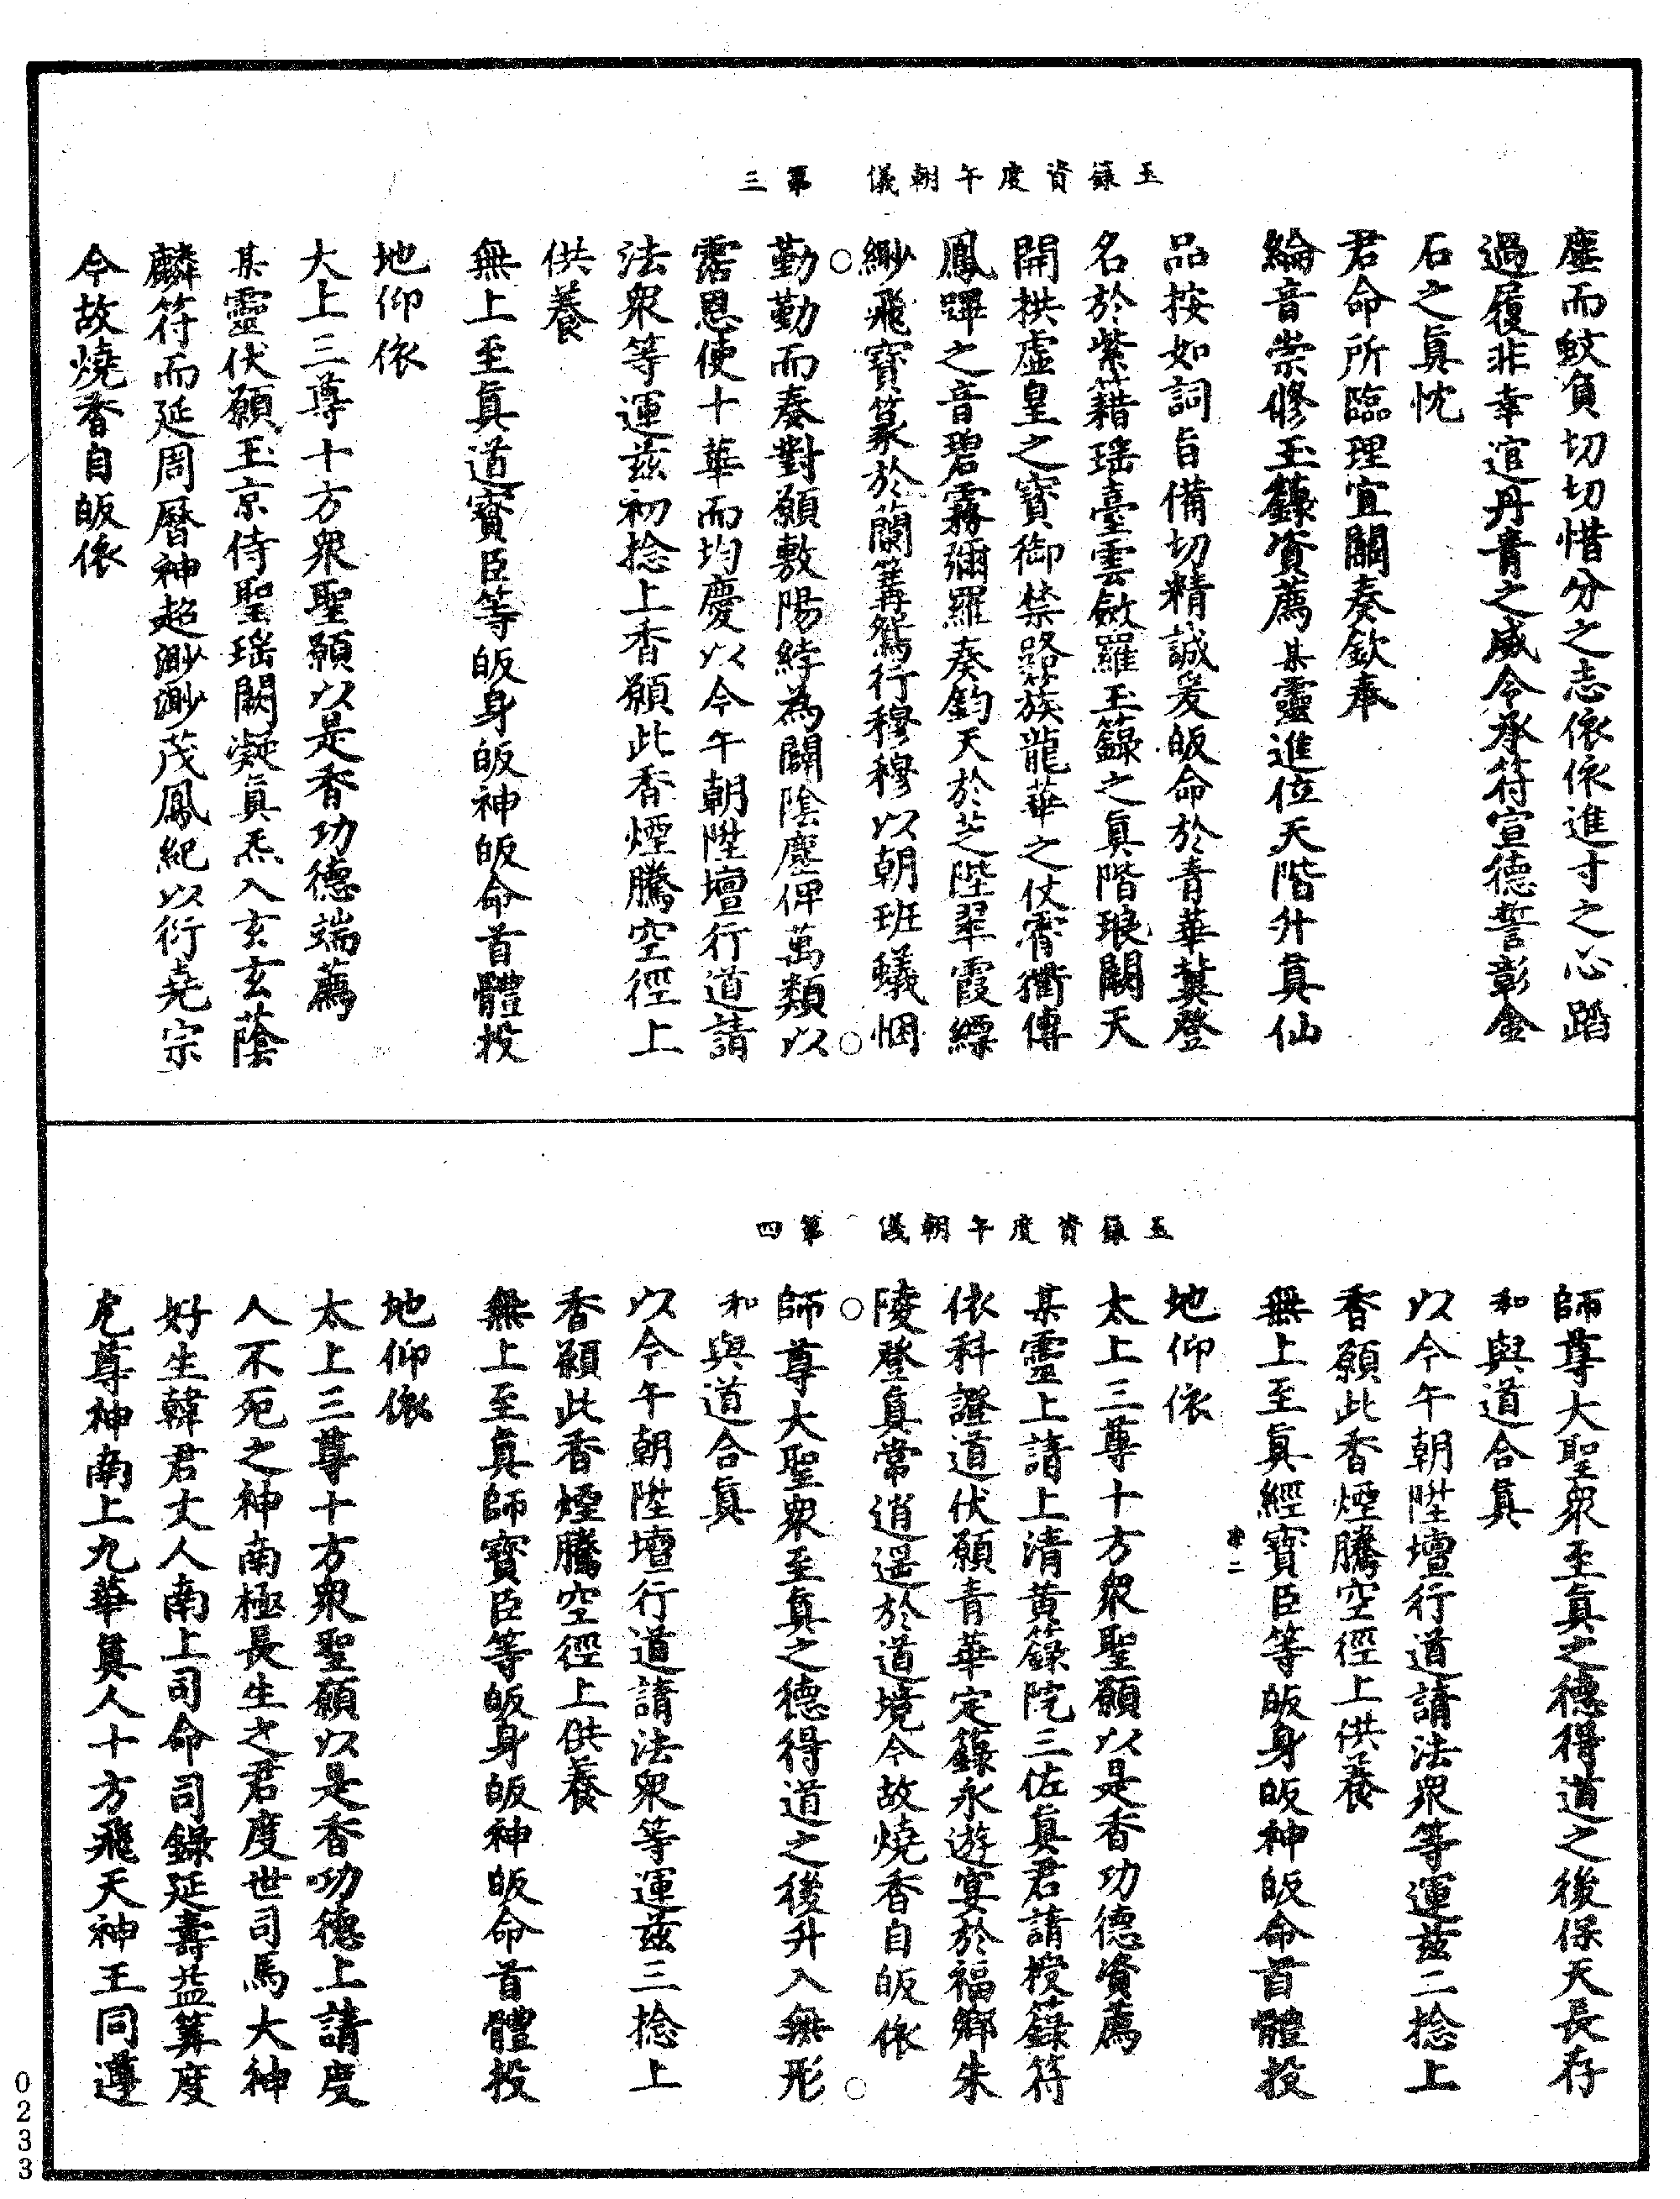 玉籙資度午朝儀　第三
塵而蚊負切切惜分之志依依進寸之心蹈
過履非幸逭丹青之威令承符宣德誓彰金
石之眞忱
君命所臨理宜關奏欽奉
綸音崇修玉籙資薦某靈進位天階升眞仙
品按如詞旨備切精誠爰皈命於青華冀登
名於紫籍瑤臺雲斂羅玉籙之眞階琅闕天
開拱虛皇之寶御禁路彝族龍華之仗霄衢傳
鳳蹕之音碧霧彌羅奏鈞天於芝陛翠霞縹
緲飛寶篆於蘭篝鴛行穆穆以朝班蟻悃
勤勤而奏對願敷陽綍為闢陰塵俾萬類以
霑恩使十華而均慶以今午朝陞壇行道請
法眾等運茲初捻上香願此香煙騰空徑上
供養
無上至眞道寶臣等皈身皈神皈命首體投
地仰依
大上三尊十方眾聖願以是香功德端薦
某靈伏願玉京侍聖瑤闕凝眞炁入玄玄蔭
麟符而延周曆神超渺渺茂鳳紀以衍堯宗
今故燒香自皈依
玉籙資度午朝儀　第四
師尊大聖眾至眞之德得道之後保天長存
和與道合眞
以今午朝陞壇行道請法眾等運茲二捻上
香願此香煙騰空徑上供養
無上至眞經寶臣等皈身皈神皈命首體投
地仰依
太上三尊十方眾聖願以是香功德資薦
某靈上請上清黃籙院三佐眞君請授籙符
依科證道伏願青華定籙永遊宴於福鄉朱
陵登眞常逍遥於道境今故燒香自皈依
師尊大聖眾至眞之德得道之後升入無形
和與道合眞
以今午朝陞壇行道請法眾等運茲三捻上
香願此香煙騰空徑上供養
無上至眞師寶臣等皈身皈神皈命首體投
地仰依
太上三尊十方眾聖願以是香功德上請度
人不死之神南極長生之君度世司馬大神
好生韓君丈人南上司命司錄延壽益筭度
厄尊神南上九華眞人十方飛天神王同遵
0233